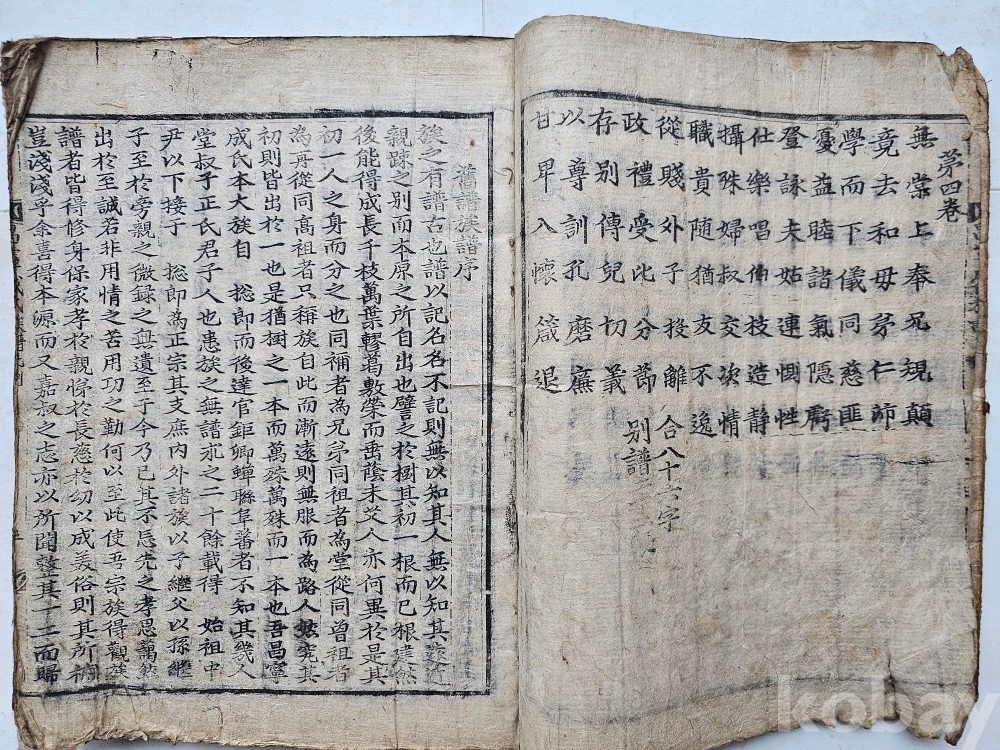 茅四卷
無棠上奉兄規顛
竟去和母茅仁沛
學而下儀同慈匪
優益睦諸氣隱虧
登詠夫姑連惻性
仕樂唱伯枝造静
攝殊婦叔交次情
職貴随猶友不逸
從賤外子投離 合八十六字
政禮受比分節 别譜
存别傅兒切義
以尊訓孔磨廉
甘卑入懷箴退
舊譜族譜序
族之有譜古也譜以記名名不記則無以知其人無以知其族近
親踈之别而本原之所自出也譬之於樹其初一根而已根建然
後能得成長千枝萬葉轇葛敷榮而蕎蔭未艾人亦何異於是其
初一人之身而分之也同禰者為兄茅同祖者為堂從同曾祖者
為再從同高祖者只稱族自此而漸遠則無服而為路人然究其
初則皆出於一也是猶樹之一本而萬殊萬殊而一本也吾昌寧
成氏本大族自 揔郎而後達官鉅卿蟬聯阜蕃者不知其幾人
堂叔子正氏君子人也患族之無譜求之二十餘載得 始祖中
尹以下接子 揔郎為正宗其支庶内外諸族以子繼父以孫繼
子至於旁親之微録之無遺至于今乃已其不忘先之孝思藹然
出於至誠若非用情之苦用功之勤何以至此使吾宗族得觀族
譜者皆得修身保家孝於親悌於長慈於幼以成美俗則其所補
豈淺淺乎余喜得本源而又嘉叔之志亦以所聞整其一二而歸